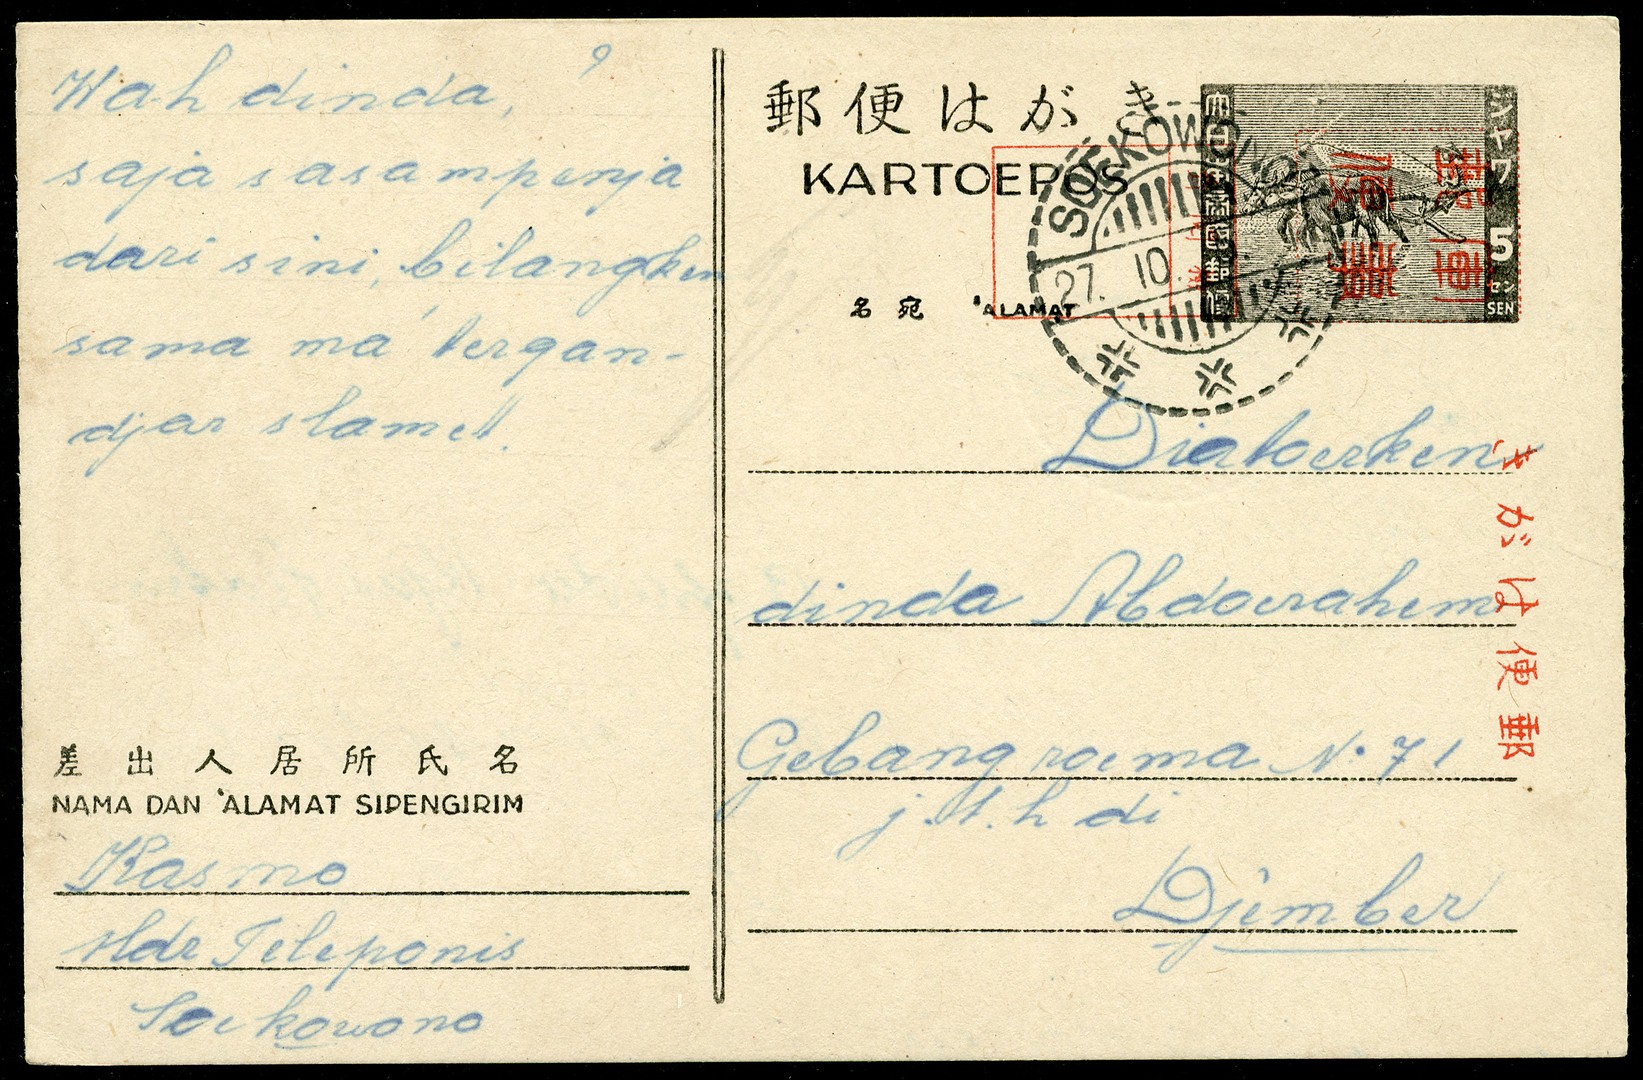 Wah dinda,
saja sasampenja
dari sini, bilangken
sama ma' tergan-
djar slamet.
差出人居所氏名
NAMA DAN 'ALAMAT SIPENGIRIM
Kasmo
Hdr Teleponis
Soekowono
郵便はがき
KARTOEPOS
名宛 'ALAMAT
SOEKOWONO
27. 10.
大日本帝國郵便
ジャワ
5
セン
SEN
郵便
郵便はがき
Diatoerken
dinda Abdoerahem
Gebang roema No 71
j.t.h di
Djember